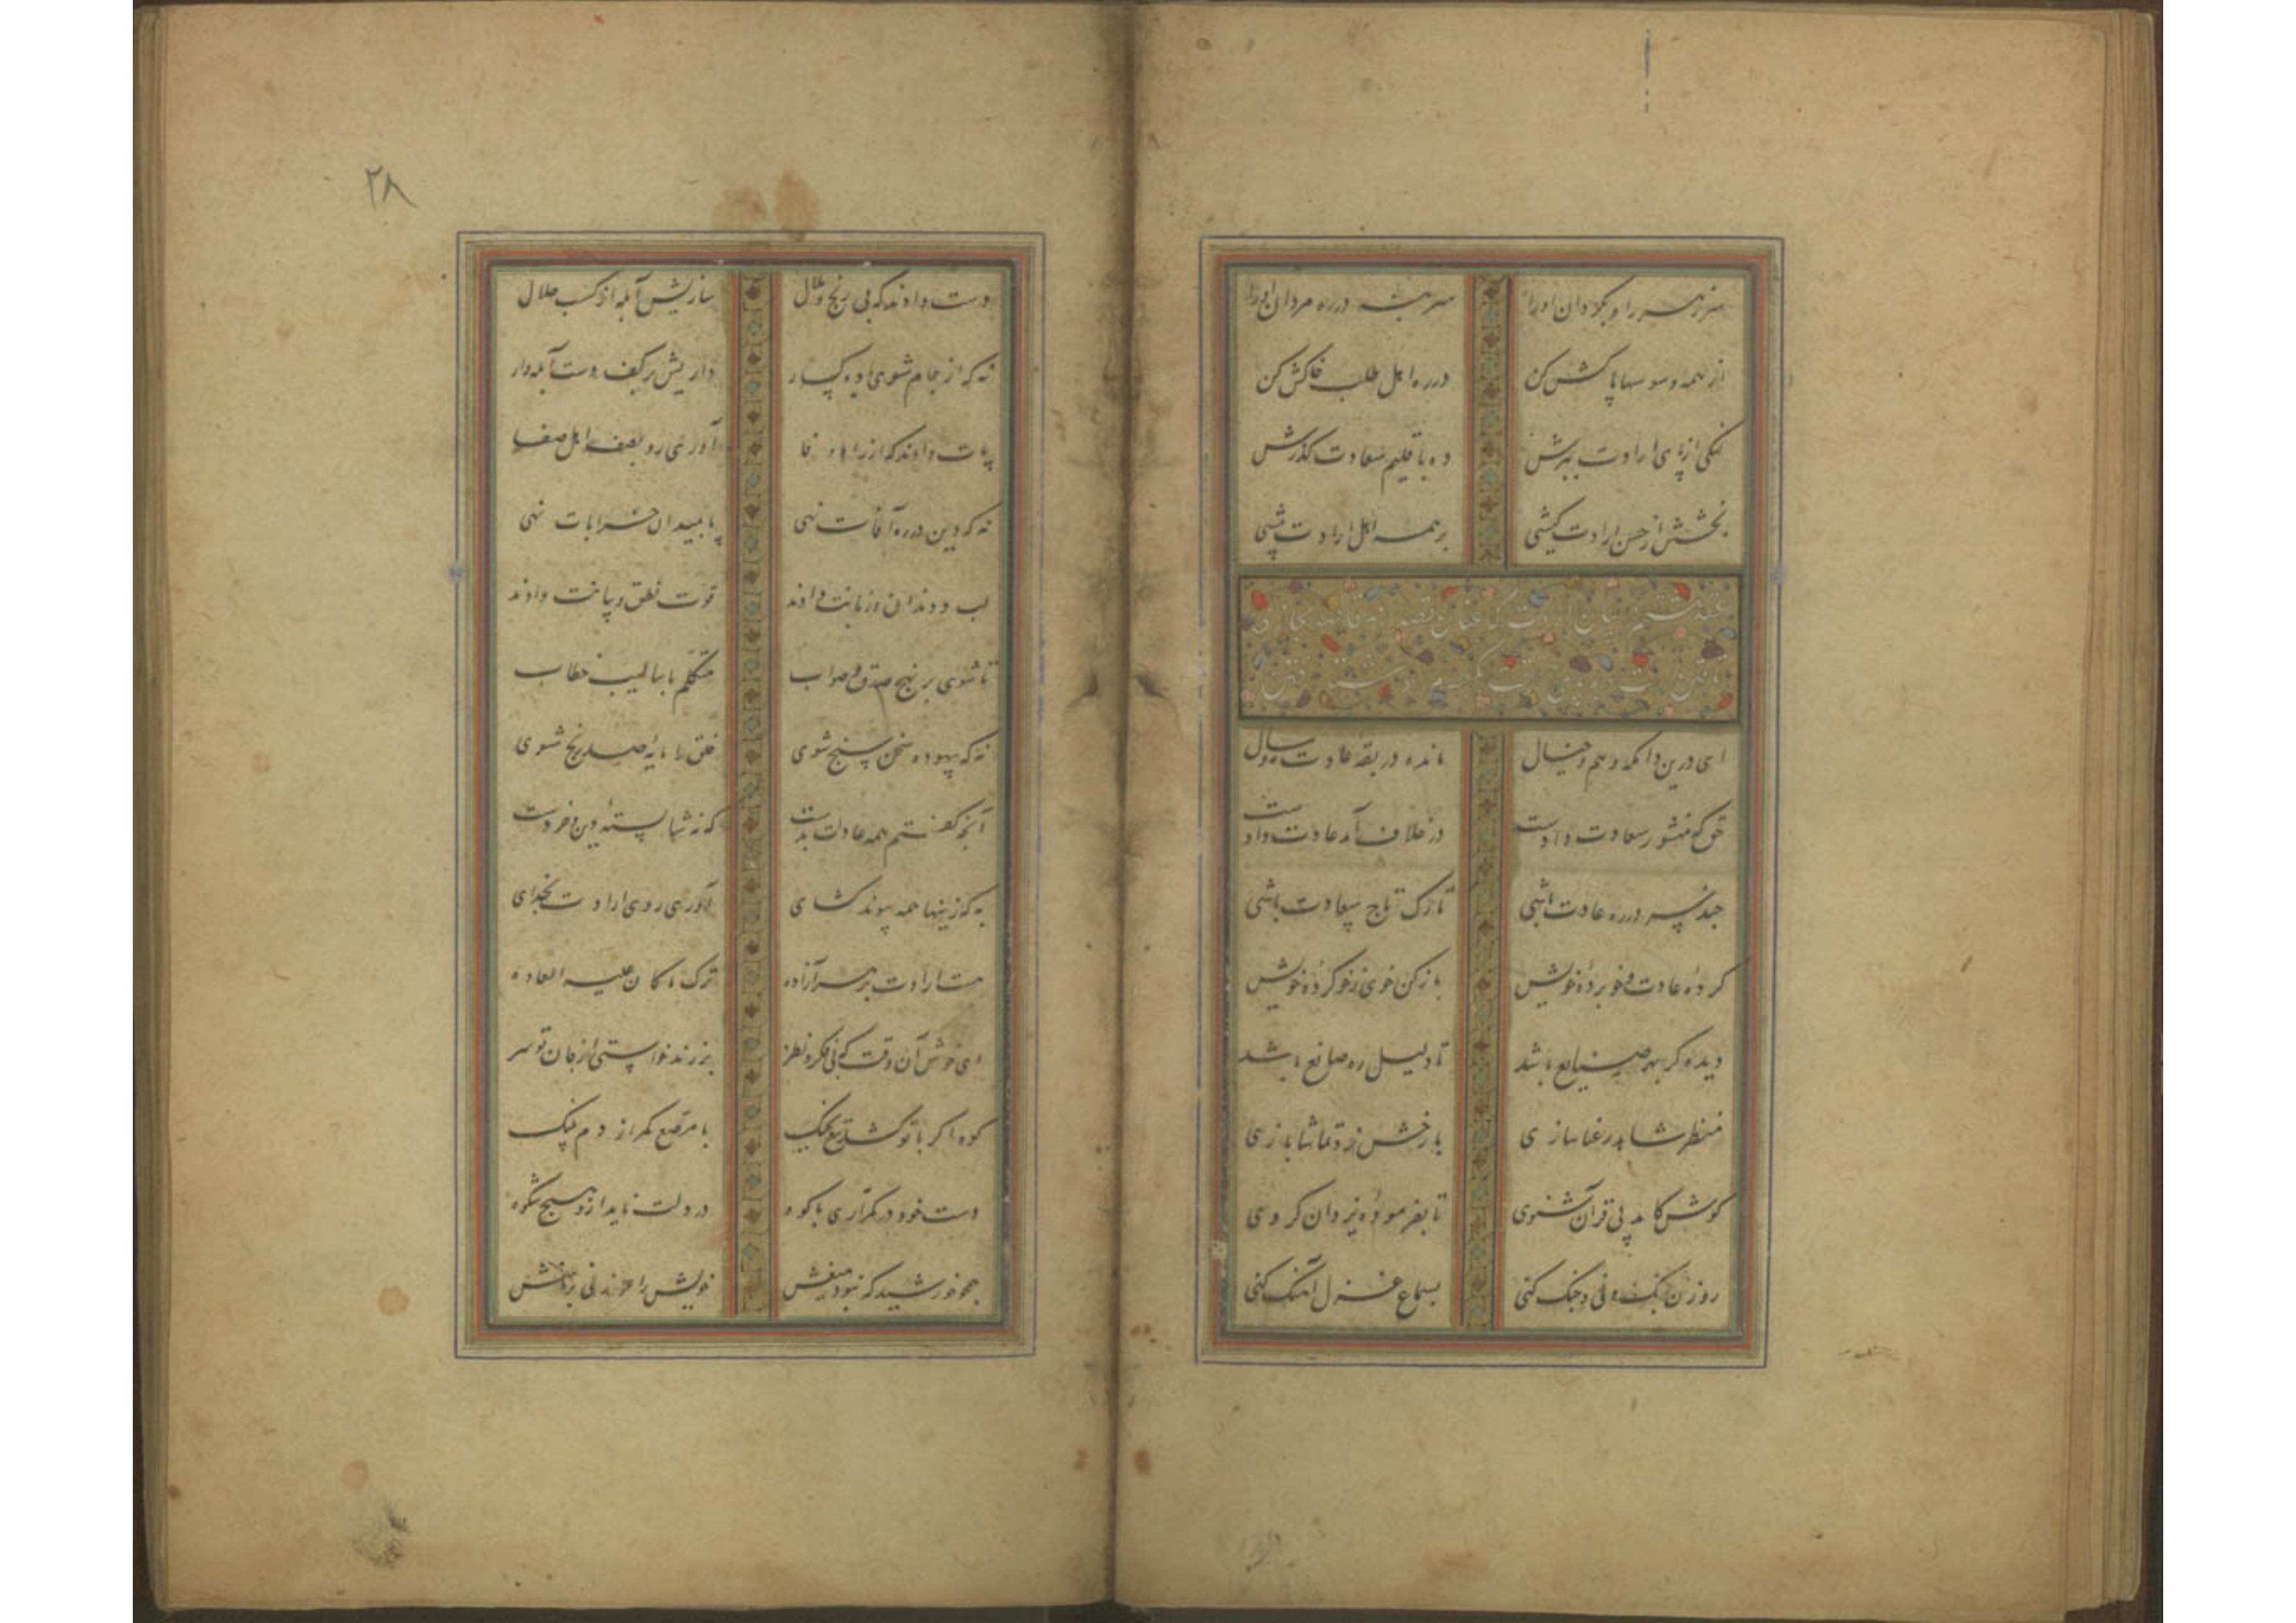 سر بنه در ره مردان او را
از همه وسوسها پاکش کن در ره اهل طلب خاکش کن
از پی ارادت ببرش ده باقلیم سعادت گذرش
بخشش از حسن ارادت کیشی بر همه اهل ارادت پیشی
ای درین دامگه وهم و خیال مانده در ربقه عادت مه و سال
حق که منشور سعادت دادست در خلاف آمد عادت دادست
چند سر در ره عادت باشی تارک تاج سعادت باشی
کرده عادت و خو پرده خویش باز کن خوی ز خو کرده خویش
دیده کز بهر صنایع باشد تا دلیل ره صانع باشد
منظر شاهد رعنا سازی با رخش نرد تماشا بازی
گوش کامد پی قرآن شنوی تا بفرموده یزدان گروی
روزن بانگ نی و چنگ کنی بسماع غزل آهنگ کنی
۲۸
دست دادند که بی رنج و ملال سازیش آبله از کسب حلال
نه که از جام شوی باده گسار داریش بر کف دست آبله دار
پات دادند که از راه وفا آوری رو بصف اهل صفا
نه که دین در ره آفات نهی پا بمیدان خرابات نهی
لب و دندان و زبانت دادند قوت نطق و بیانت دادند
تا شوی بر نهج صدق و صواب متکلم باسالیب خطاب
نه که بیهوده سخن سنج شوی خلق را مایه صد رنج شوی
آنچه گفتم همه عادات بدست که نه شایسته دین و خردست
به کزینها همه پیوند گشای آوری روی ارادت بخدای
هست ارادت بر هر آزاده ترک ما کان علیه العاده
ای خوش آن وقت که بی فکر و نظر بزند خواستی از جان تو سر
کوه اگر با تو کشد تیغ بجنگ با مرصع کمر از دم پلنگ
دست خود در کمر آری با کوه در دلت ناید از و هیچ شکوه
همچو خورشید که نبود میغش خویش را عور زنی بر تیغش